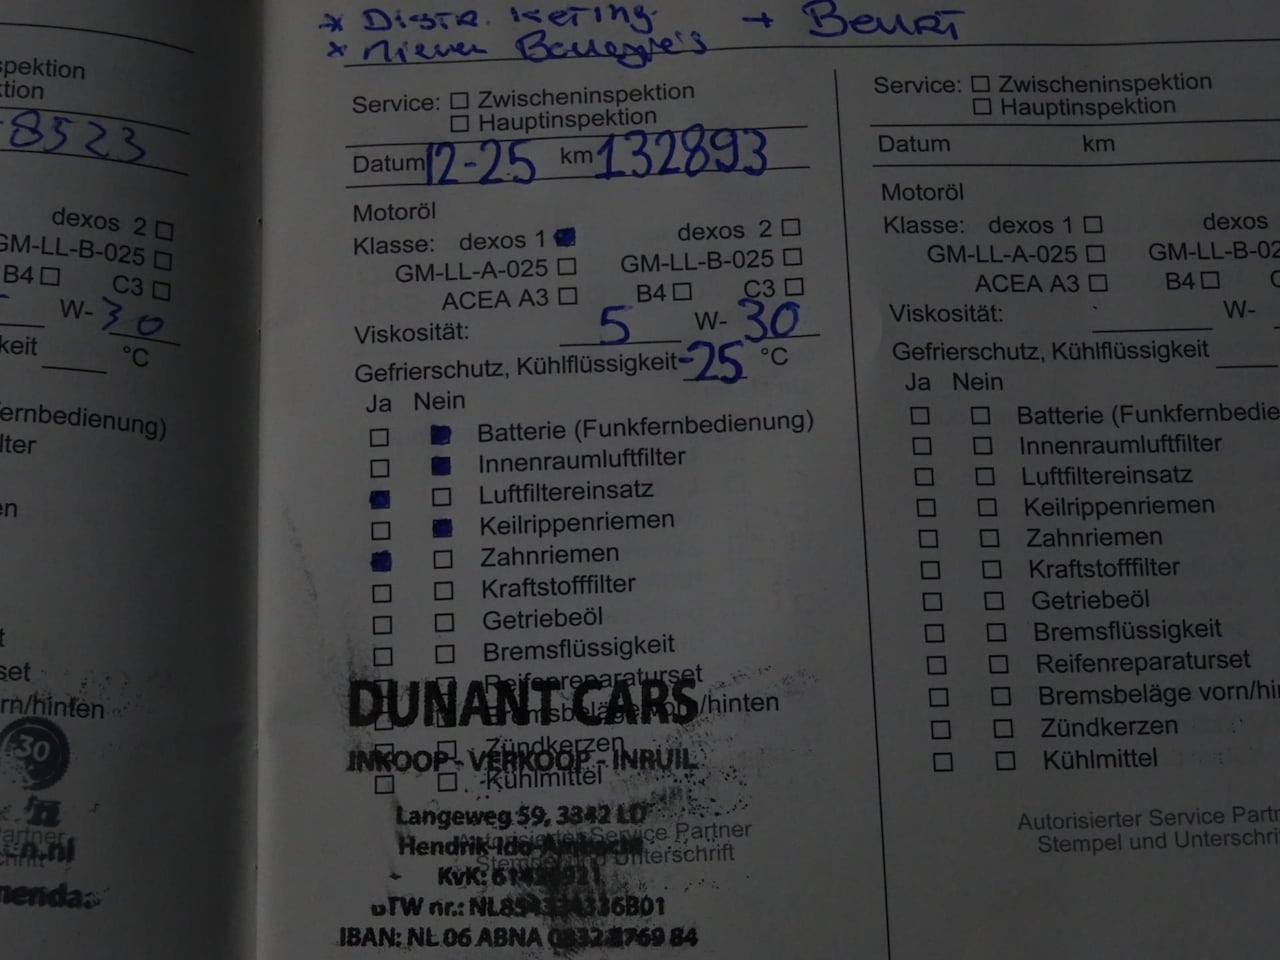 spektion
ktion
-8523
dexos 2
GM-LL-B-025
B4 C3
W- 30
keit °C
ernbedienung)
lter
en
t
set
rn/hinten
30
* Distr. Ketting + Beurt
* Nieuw
Service: Zwischeninspektion
Hauptinspektion
Datum 12-25 km 132893
Motoröl
Klasse: dexos 1 dexos 2
GM-LL-A-025 GM-LL-B-025
ACEA A3 B4 C3
Viskosität: 5 W- 30
Gefrierschutz, Kühlflüssigkeit -25 °C
Ja Nein
Batterie (Funkfernbedienung)
Innenraumluftfilter
Luftfiltereinsatz
Keilrippenriemen
Zahnriemen
Kraftstofffilter
Getriebeöl
Bremsflüssigkeit
Reifenreparaturset
Bremsbeläge vorn/hinten
Zündkerzen
Kühlmittel
Autorisierter Service Partner
Stempel und Unterschrift
DUNANT CARS
INKOOP - VERKOOP - INRUIL
Langeweg 59, 3342 LD
Hendrik-Ido-Ambacht
KvK:
BTW nr.:
IBAN: NL 06 ABNA
Service: Zwischeninspektion
Hauptinspektion
Datum km
Motoröl
Klasse: dexos 1 dexos
GM-LL-A-025 GM-LL-B-02
ACEA A3 B4
Viskosität: W-
Gefrierschutz, Kühlflüssigkeit
Ja Nein
Batterie (Funkfernbedie
Innenraumluftfilter
Luftfiltereinsatz
Keilrippenriemen
Zahnriemen
Kraftstofffilter
Getriebeöl
Bremsflüssigkeit
Reifenreparaturset
Bremsbeläge vorn/hin
Zündkerzen
Kühlmittel
Autorisierter Service Partn
Stempel und Unterschri